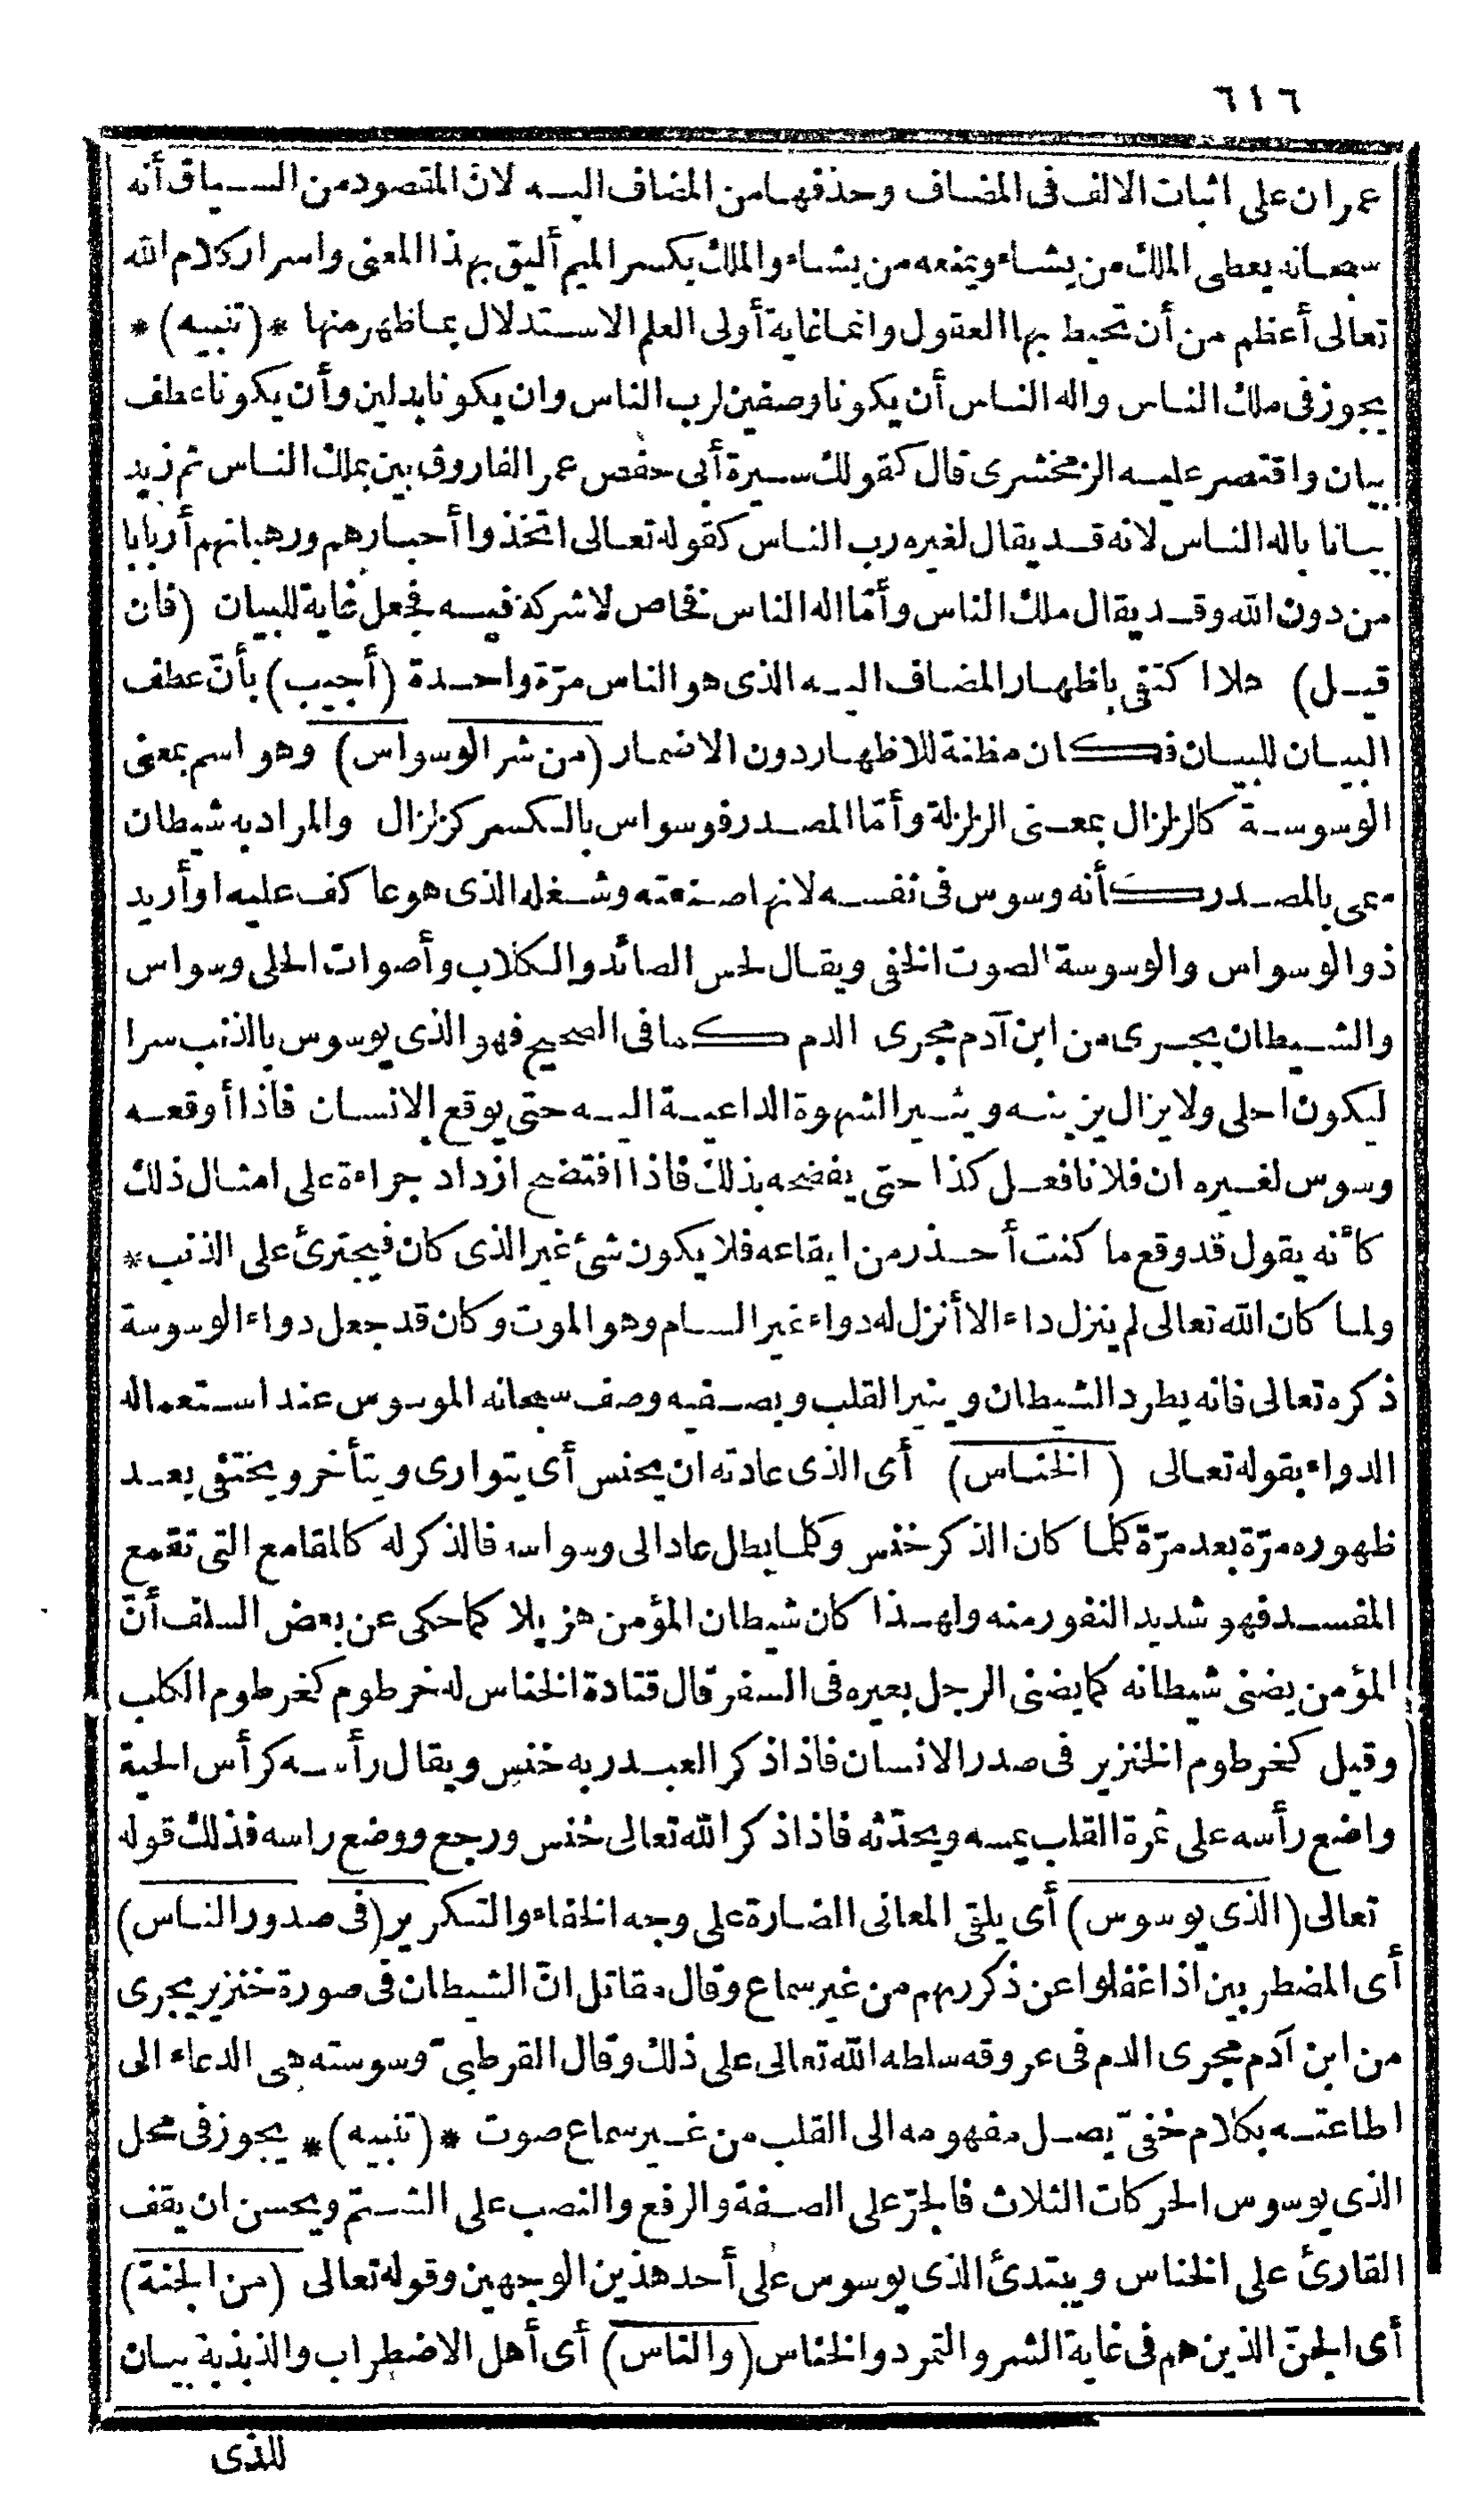 ٦١٦
عمران على اثبات الالف فى المضاف وحذفها من المضاف اليه لانّ المقصود من السياق أنه
سبحانه يعطى الملك من يشاء ويمنعه من يشاء والملك بكسر الميم أليق بهذا المعنى واسرار كلام الله
تعالى أعظم من أن تحيط بها العقول وانما غاية أولى العلم الاستدلال بما ظهر منها * (تنبيه) *
يجوز فى ملك الناس واله الناس أن يكونا وصفين لرب الناس وان يكونا بدلين وأن يكونا عطف
بيان واقتصر عليه الزمخشرى قال كقولك سيرة أبى حفص عمر الفاروق بين بملك الناس ثم زيد
بيانا باله الناس لانه قد يقال لغيره رب الناس كقوله تعالى اتخذوا أحبارهم ورهبانهم أربابا
من دون الله وقد يقال ملك الناس وأمّا اله الناس فخاص لا شركة فيه فجعل غاية للبيان (فان
قيل) هلا اكتفى باظهار المضاف اليه الذى هو الناس مرّة واحدة (أجيب) بأنّ عطف
البيان للبيان فكان مظنة للاظهار دون الاضمار (من شر الوسواس) وهو اسم بمعنى
الوسوسة كالزلزال بمعنى الزلزلة وأمّا المصدر فوسواس بالكسر كزلزال والمراد به شيطان
سمى بالمصدر كأنه وسوس فى نفسه لانها صنعته وشغله الذى هو عاكف عليه او أريد
ذو الوسواس والوسوسة الصوت الخفى ويقال لحس الصائد والكلاب وأصوات الحلى وسواس
والشيطان يجرى من ابن آدم مجرى الدم كما فى الصحيح فهو الذى يوسوس بالذنب سرا
ليكون احلى ولا يزال يزينه ويثير الشهوة الداعية اليه حتى يوقع الانسان فاذا أوقعه
وسوس لغيره ان فلانا فعل كذا حتى يفضحه بذلك فاذا افتضح ازداد جراءة على امثال ذلك
كأنه يقول قد وقع ما كنت أحذر من ايقاعه فلا يكون شئ غير الذى كان فيجترئ على الذنب *
ولما كان الله تعالى لم ينزل داء الا أنزل له دواء غير السام وهو الموت وكان قد جعل دواء الوسوسة
ذكره تعالى فانه يطرد الشيطان وينير القلب ويصفيه وصف سبحانه الموسوس عند استعماله
الدواء بقوله تعالى (الخناس) أى الذى عادته ان يخنس أى يتوارى ويتأخر ويختفى بعد
ظهوره مرّة بعد مرّة كلما كان الذكر خنس وكلما بطل عاد الى وسواسه فالذكر له كالمقامع التى تقمع
المفسد فهو شديد النفور منه ولهذا كان شيطان المؤمن هزيلا كما حكى عن بعض السلف أنّ
المؤمن يضنى شيطانه كما يضنى الرجل بعيره فى السفر قال قتادة الخناس له خرطوم كخرطوم الكلب
وقيل كخرطوم الخنزير فى صدر الانسان فاذا ذكر العبد ربه خنس ويقال رأسه كرأس الحية
واضع رأسه على ثمرة القلب يمسه ويحدّثه فاذا ذكر الله تعالى خنس ورجع ووضع راسه فذلك قوله
تعالى (الذى يوسوس) أى يلقى المعانى الضارة على وجه الخفاء والتكرير (فى صدور الناس)
أى المضطربين اذا غفلوا عن ذكر ربهم من غير سماع وقال مقاتل انّ الشيطان فى صورة خنزير يجرى
من ابن آدم مجرى الدم فى عروقه سلطه الله تعالى على ذلك وقال القرطبىّ وسوسته هى الدعاء الى
اطاعته بكلام خفىّ يصل مفهومه الى القلب من غير سماع صوت * (تنبيه) * يجوز فى محل
الذى يوسوس الحركات الثلاث فالجرّ على الصفة والرفع والنصب على الشتم ويحسن ان يقف
القارئ على الخناس ويبتدئ الذى يوسوس على أحد هذين الوجهين وقوله تعالى (من الجنة)
أى الجنّ الذين هم فى غاية الشر والتمرد والخناس (والناس) أى أهل الاضطراب والذبذبة بيان
للذى